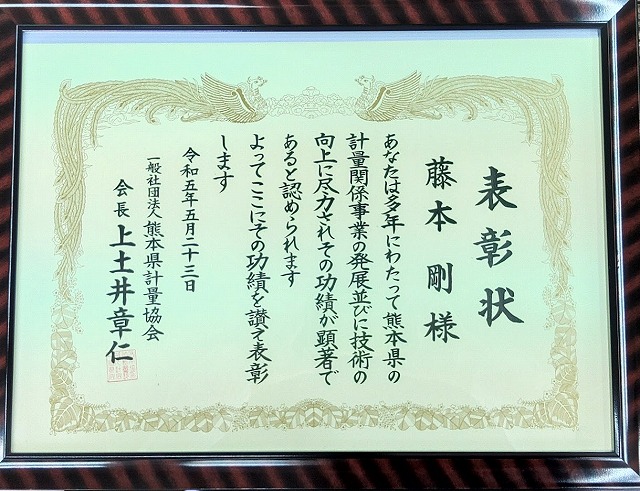 表彰状
藤本 剛 様
あなたは多年にわたって熊本県の
計量関係事業の発展並びに技術の
向上に尽力されその功績が顕著で
あると認められます
よってここにその功績を讃え表彰
します
令和五年五月二十三日
一般社団法人熊本県計量協会
会長 上土井章仁